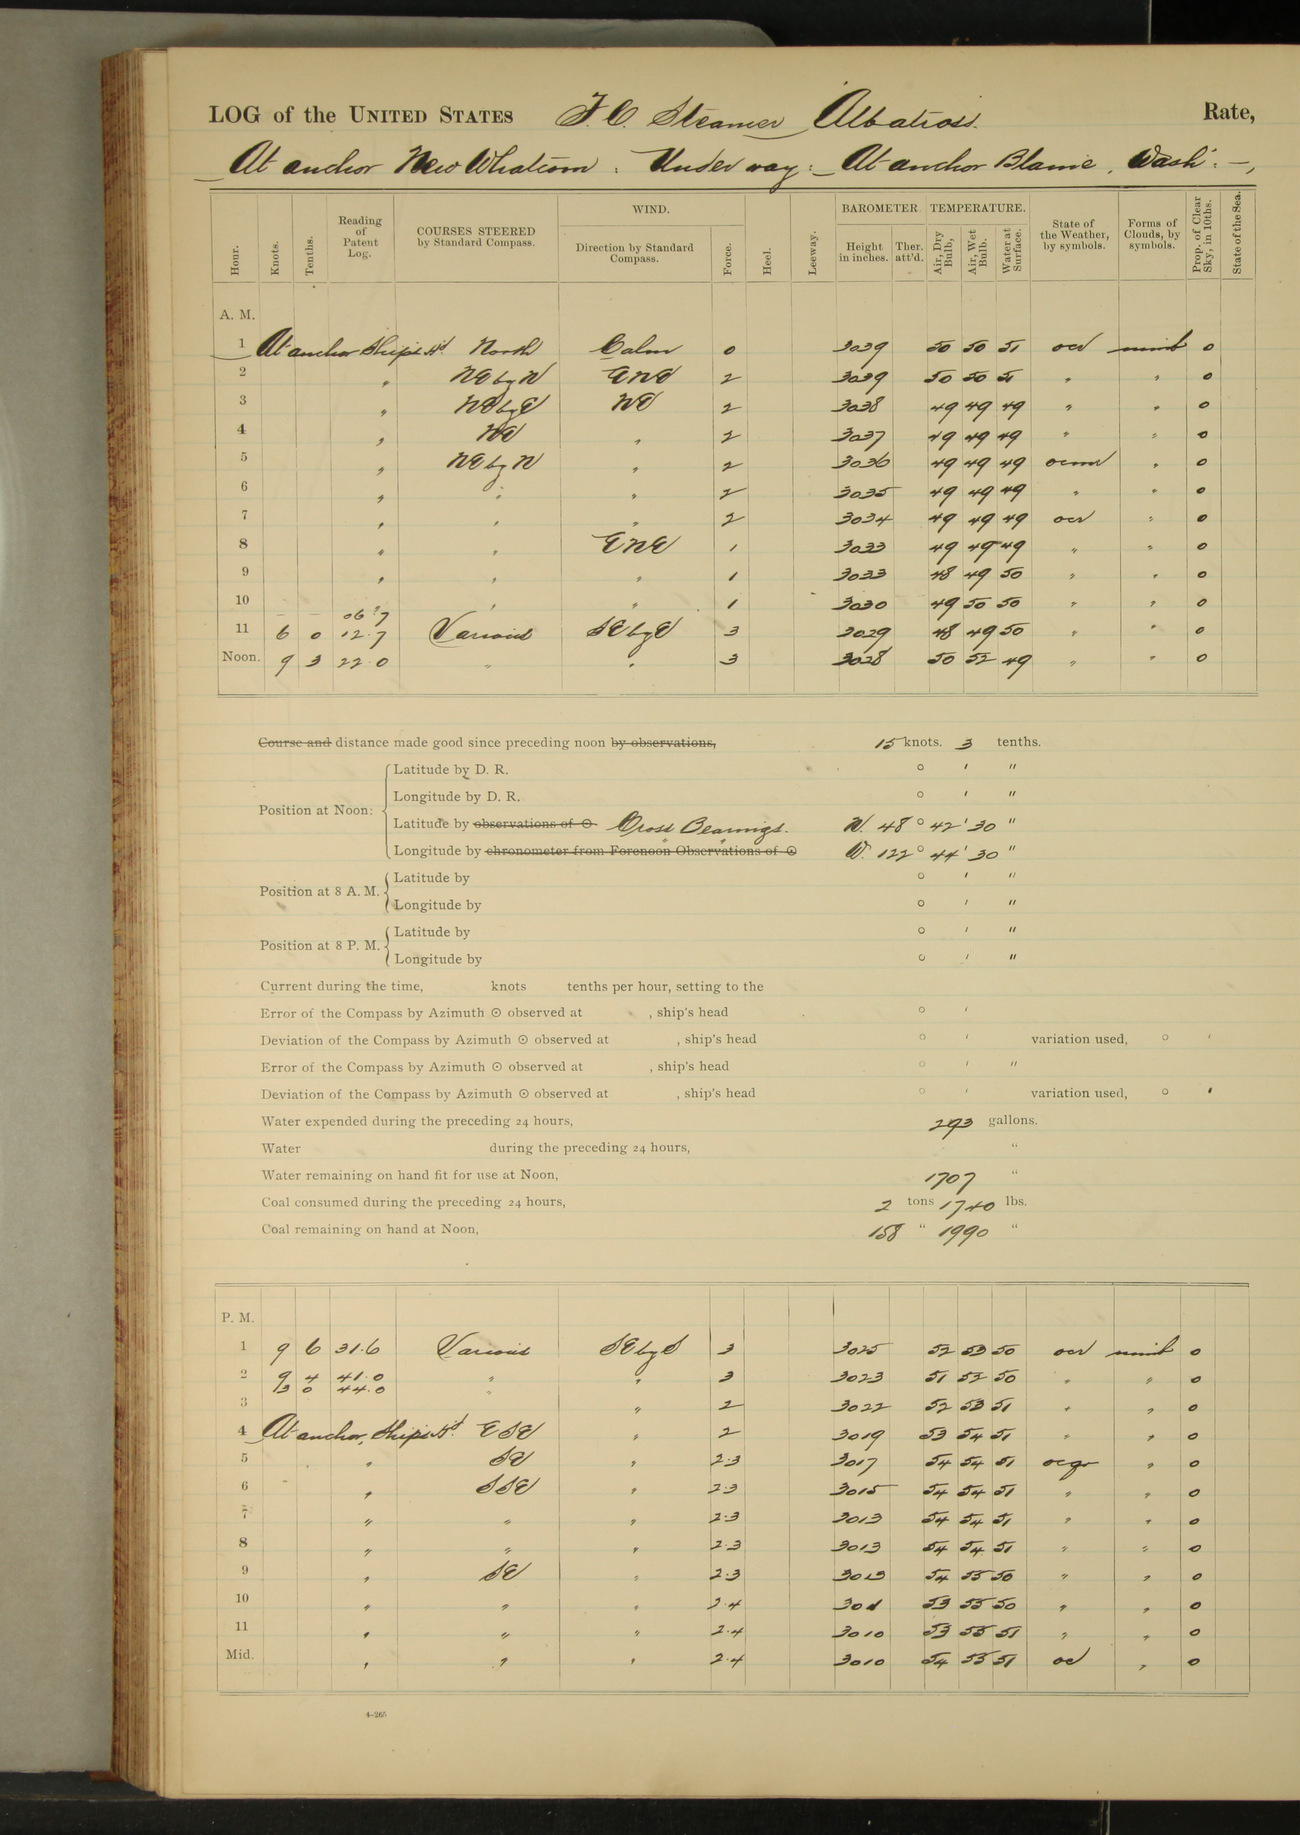 LOG of the UNITED STATES F. C. Steamer Albatross. Rate,
At anchor New Whatcom : Under way : At anchor Blaine, Wash : —,
Hour. Knots. Tenths. Reading of Patent Log. COURSES STEERED by Standard Compass. WIND. Direction by Standard Compass. Force. Heel. Leeway. BAROMETER. Height in inches. Ther. att'd. TEMPERATURE. Air, Dry Bulb, Air, Wet Bulb. Water at Surface. State of the Weather, by symbols. Forms of Clouds, by symbols. Prop. of Clear Sky, in 10ths. State of the Sea.
A. M.
1 At anchor Ship's H'd North Calm 0 3039 50 50 51 ocr nimb 0
2 " NE by N ENE 2 3039 50 50 51 " " 0
3 " NE by E NE 2 3038 49 49 49 " " 0
4 " NE " 2 3037 49 49 49 " " 0
5 " NE by N " 2 3036 49 49 49 ocmr " 0
6 " " " 2 3035 49 49 49 " " 0
7 " " " 2 3034 49 49 49 ocr " 0
8 " " ENE 1 3033 49 49 49 " " 0
9 " " " 1 3033 48 49 50 " " 0
10 — — 06.7 " " 1 3030 49 50 50 " " 0
11 6 0 12.7 Various SE by E 3 3029 48 49 50 " " 0
Noon. 9 3 22.0 " " 3 3028 50 52 49 " " 0
Course and distance made good since preceding noon by observations, 15 knots. 3 tenths.
Position at Noon: Latitude by D. R. ° ' "
Longitude by D. R. ° ' "
Latitude by observations of ☉ Cross Bearings. N. 48° 42' 30"
Longitude by chronometer from Forenoon Observations of ☉ " " W. 122° 44' 30"
Position at 8 A. M. Latitude by ° ' "
Longitude by ° ' "
Position at 8 P. M. Latitude by ° ' "
Longitude by ° ' "
Current during the time, knots tenths per hour, setting to the
Error of the Compass by Azimuth ☉ observed at , ship's head ° '
Deviation of the Compass by Azimuth ☉ observed at , ship's head ° ' variation used, ° '
Error of the Compass by Azimuth ☉ observed at , ship's head ° ' "
Deviation of the Compass by Azimuth ☉ observed at , ship's head ° ' variation used, ° '
Water expended during the preceding 24 hours, 293 gallons.
Water during the preceding 24 hours, "
Water remaining on hand fit for use at Noon, 1707 "
Coal consumed during the preceding 24 hours, 2 tons 1740 lbs.
Coal remaining on hand at Noon, 158 " 1990 "
P. M.
1 9 6 31.6 Various SE by S 3 3025 52 53 50 ocr nimb 0
2 9 4 41.0 " " 3 3023 51 52 50 " " 0
3 0 44.0 "
3 " 2 3022 52 53 51 " " 0
4 At anchor, Ship's H'd. ESE " 2 3019 53 54 51 " " 0
5 " SE " 2.3 3017 54 54 51 ocqr " 0
6 " SSE " 2.3 3015 54 54 51 " " 0
7 " " " 2.3 3013 54 54 51 " " 0
8 " " " 2.3 3013 54 54 51 " " 0
9 " SE " 2.3 3013 54 55 50 " " 0
10 " " " 2.4 53 55 50 " " 0
11 " " " 2.4 3010 53 55 51 " " 0
Mid. " " " 2.4 3010 54 55 51 oc " 0
4–265